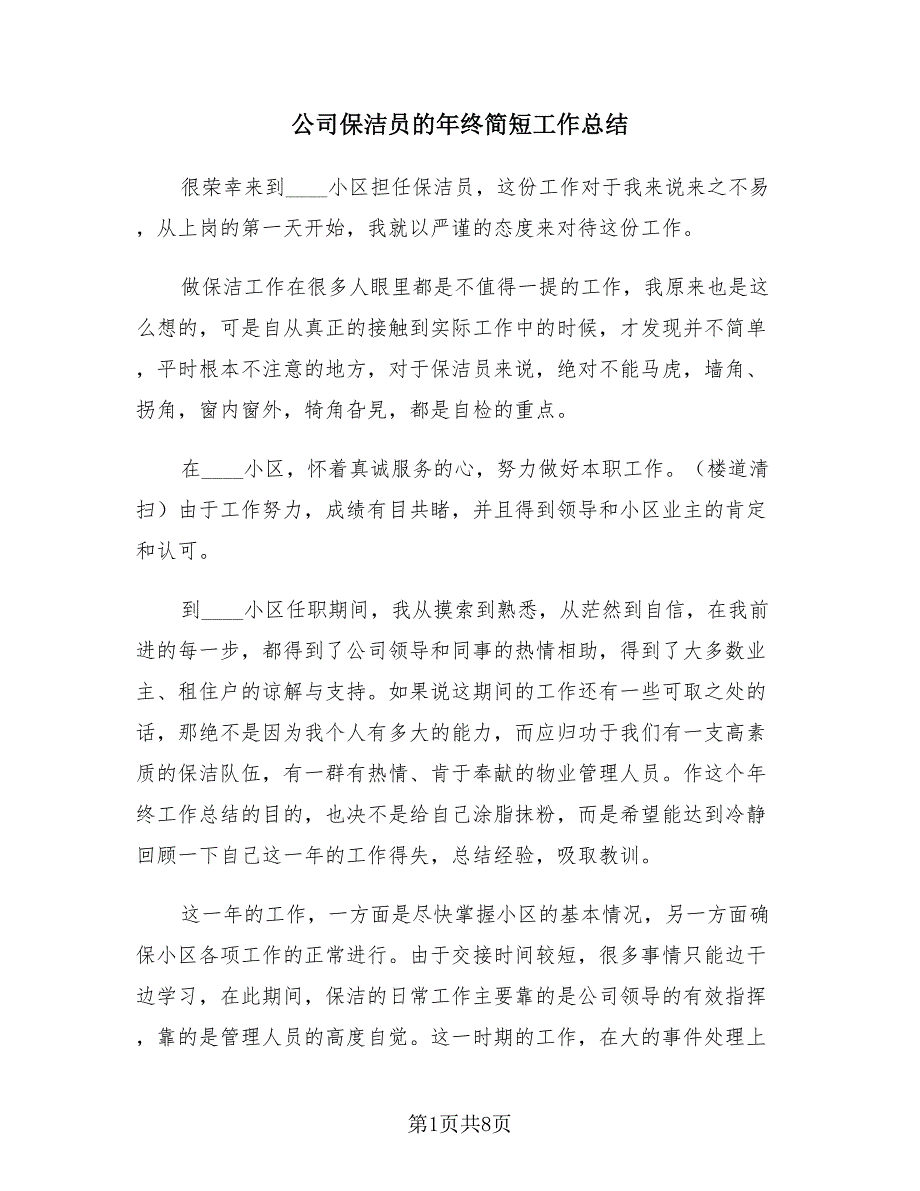 公司保洁员的年终简短工作总结
很荣幸来到____小区担任保洁员，这份工作对于我来说来之不易
，从上岗的第一天开始，我就以严谨的态度来对待这份工作。
做保洁工作在很多人眼里都是不值得一提的工作，我原来也是这
么想的，可是自从真正的接触到实际工作中的时候，才发现并不简单
，平时根本不注意的地方，对于保洁员来说，绝对不能马虎，墙角、
拐角，窗内窗外，犄角旮旯，都是自检的重点。
在____小区，怀着真诚服务的心，努力做好本职工作。（楼道清
扫）由于工作努力，成绩有目共睹，并且得到领导和小区业主的肯定
和认可。
到____小区任职期间，我从摸索到熟悉，从茫然到自信，在我前
进的每一步，都得到了公司领导和同事的热情相助，得到了大多数业
主、租住户的谅解与支持。如果说这期间的工作还有一些可取之处的
话，那绝不是因为我个人有多大的能力，而应归功于我们有一支高素
质的保洁队伍，有一群有热情、肯于奉献的物业管理人员。作这个年
终工作总结的目的，也决不是给自己涂脂抹粉，而是希望能达到冷静
回顾一下自己这一年的工作得失，总结经验，吸取教训。
这一年的工作，一方面是尽快掌握小区的基本情况，另一方面确
保小区各项工作的正常进行。由于交接时间较短，很多事情只能边干
边学习，在此期间，保洁的日常工作主要靠的是公司领导的有效指挥
，靠的是管理人员的高度自觉。这一时期的工作，在大的事件处理上
第1页共8页